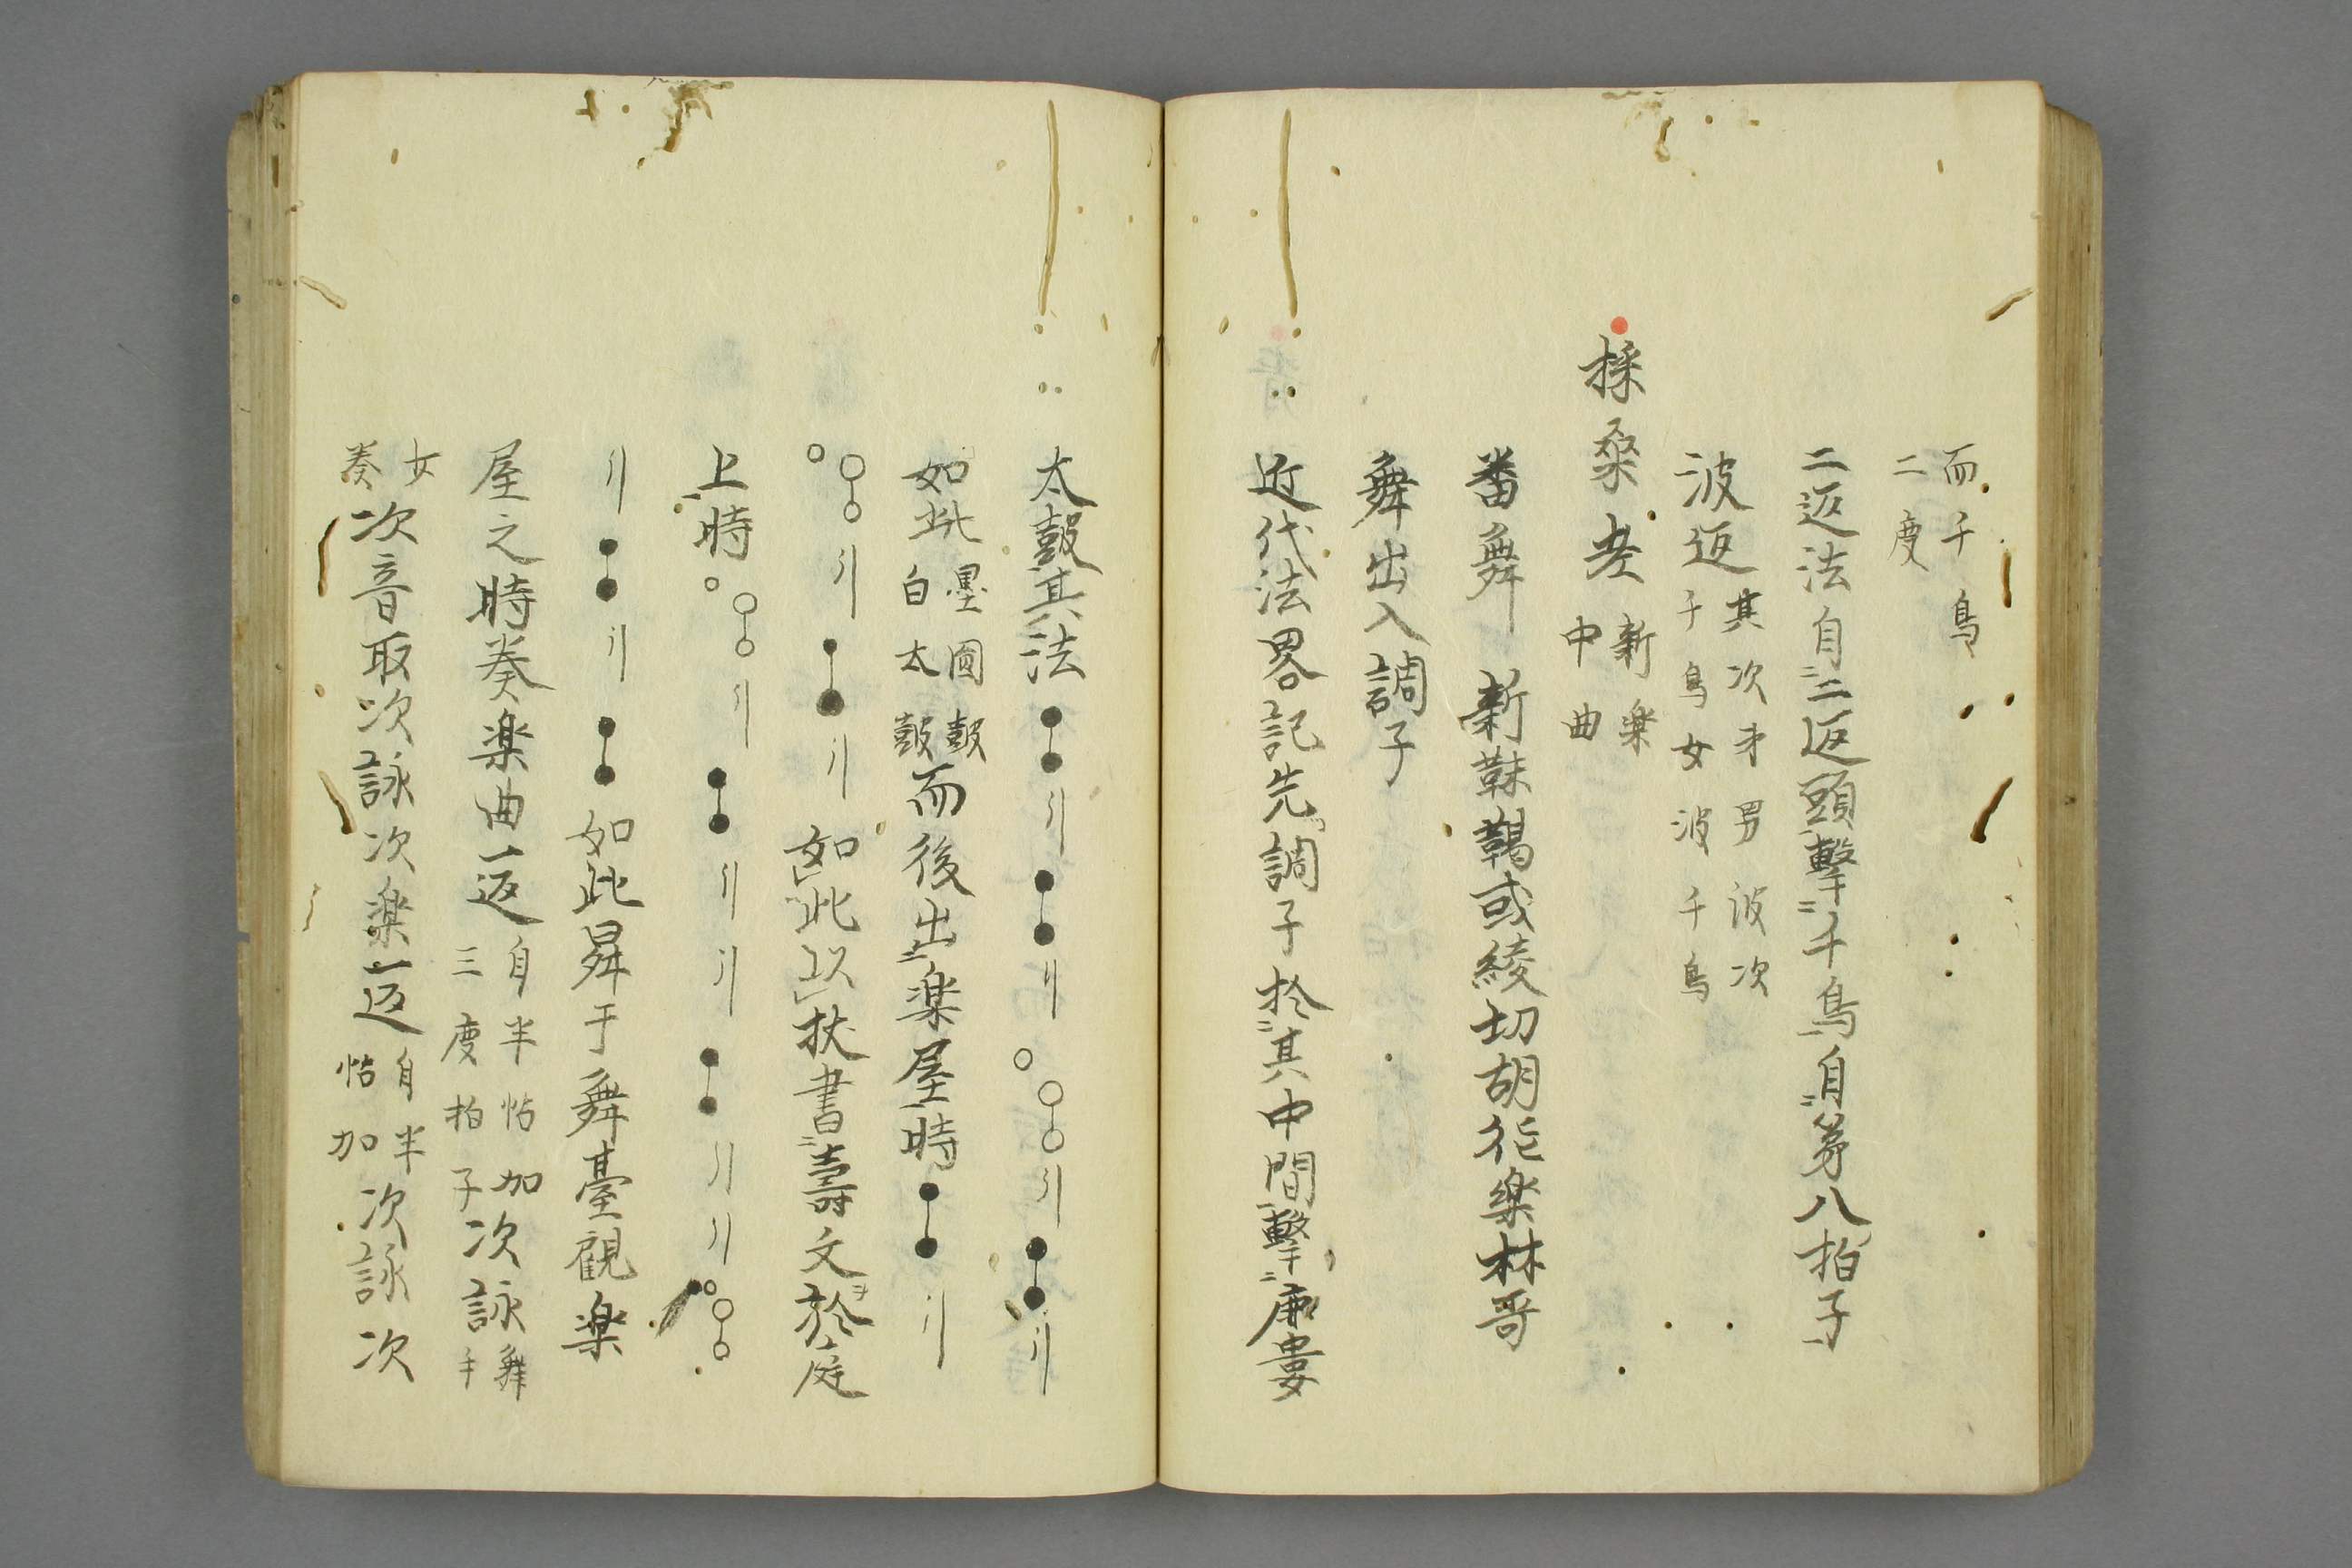 而千鳥
二度
二返法自二返頭撃千鳥自第八拍子
波返 其次才男波次
千鳥女波千鳥
採桑老 新楽
中曲
番舞 新靺鞨或綾切胡徳楽林哥
舞出入調子
近代法畧記先調子於其中間撃鹿婁
太鼓其法
如此 墨圓鼓
白太鼓 而後出楽屋時
如此以扶書壽文於庭
上時
如此舞于舞臺観楽
屋之時奏楽曲一返 自半帖加
三度拍子 次詠 舞
女
奏 次音取次詠次楽一返 自半
帖加 次詠次